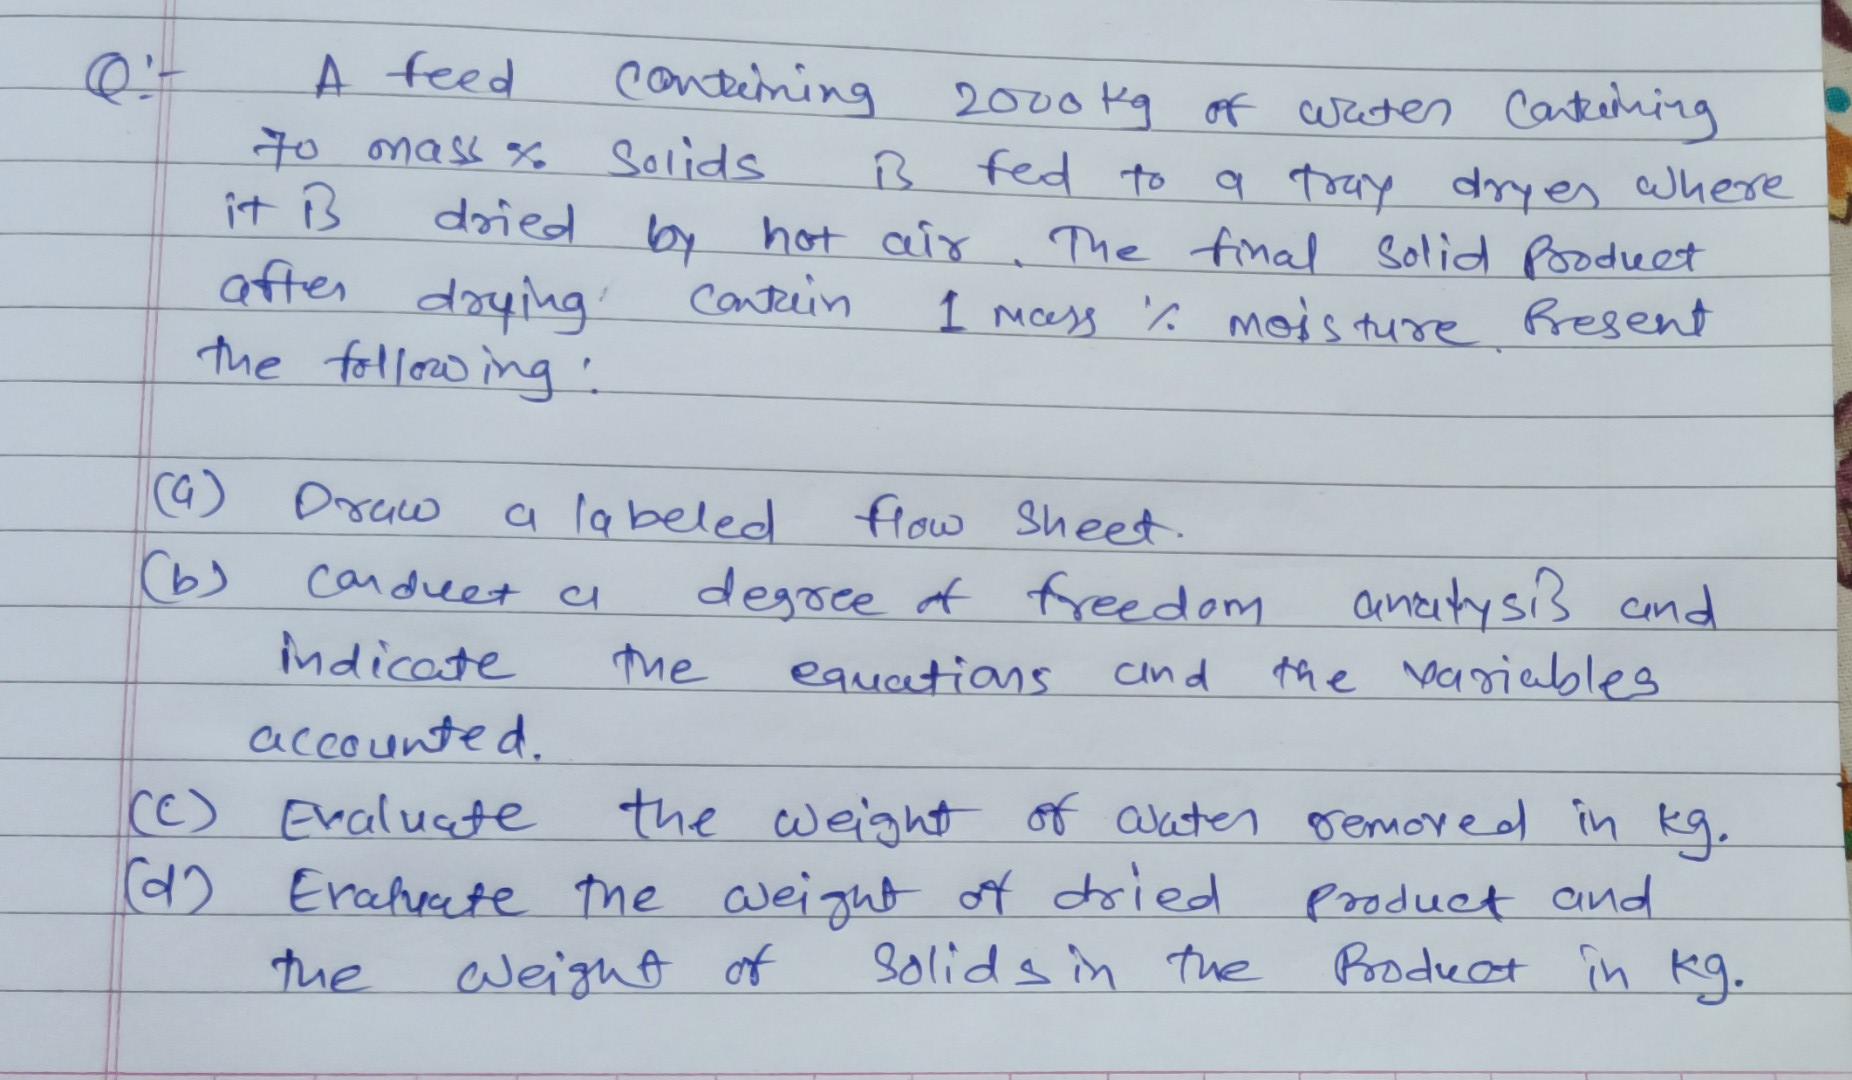 Q:- A feed containing 2000 kg of water containing
70 mass % solids is fed to a tray dryer where
it is dried by hot air. The final solid product
after drying contain 1 mass % moisture. Present
the following:
(a) Draw a labeled flow sheet.
(b) conduct a degree of freedom analysis and
indicate the equations and the variables
accounted.
(c) Evaluate the weight of water removed in kg.
(d) Evaluate the weight of dried product and
the weight of solids in the product in kg.